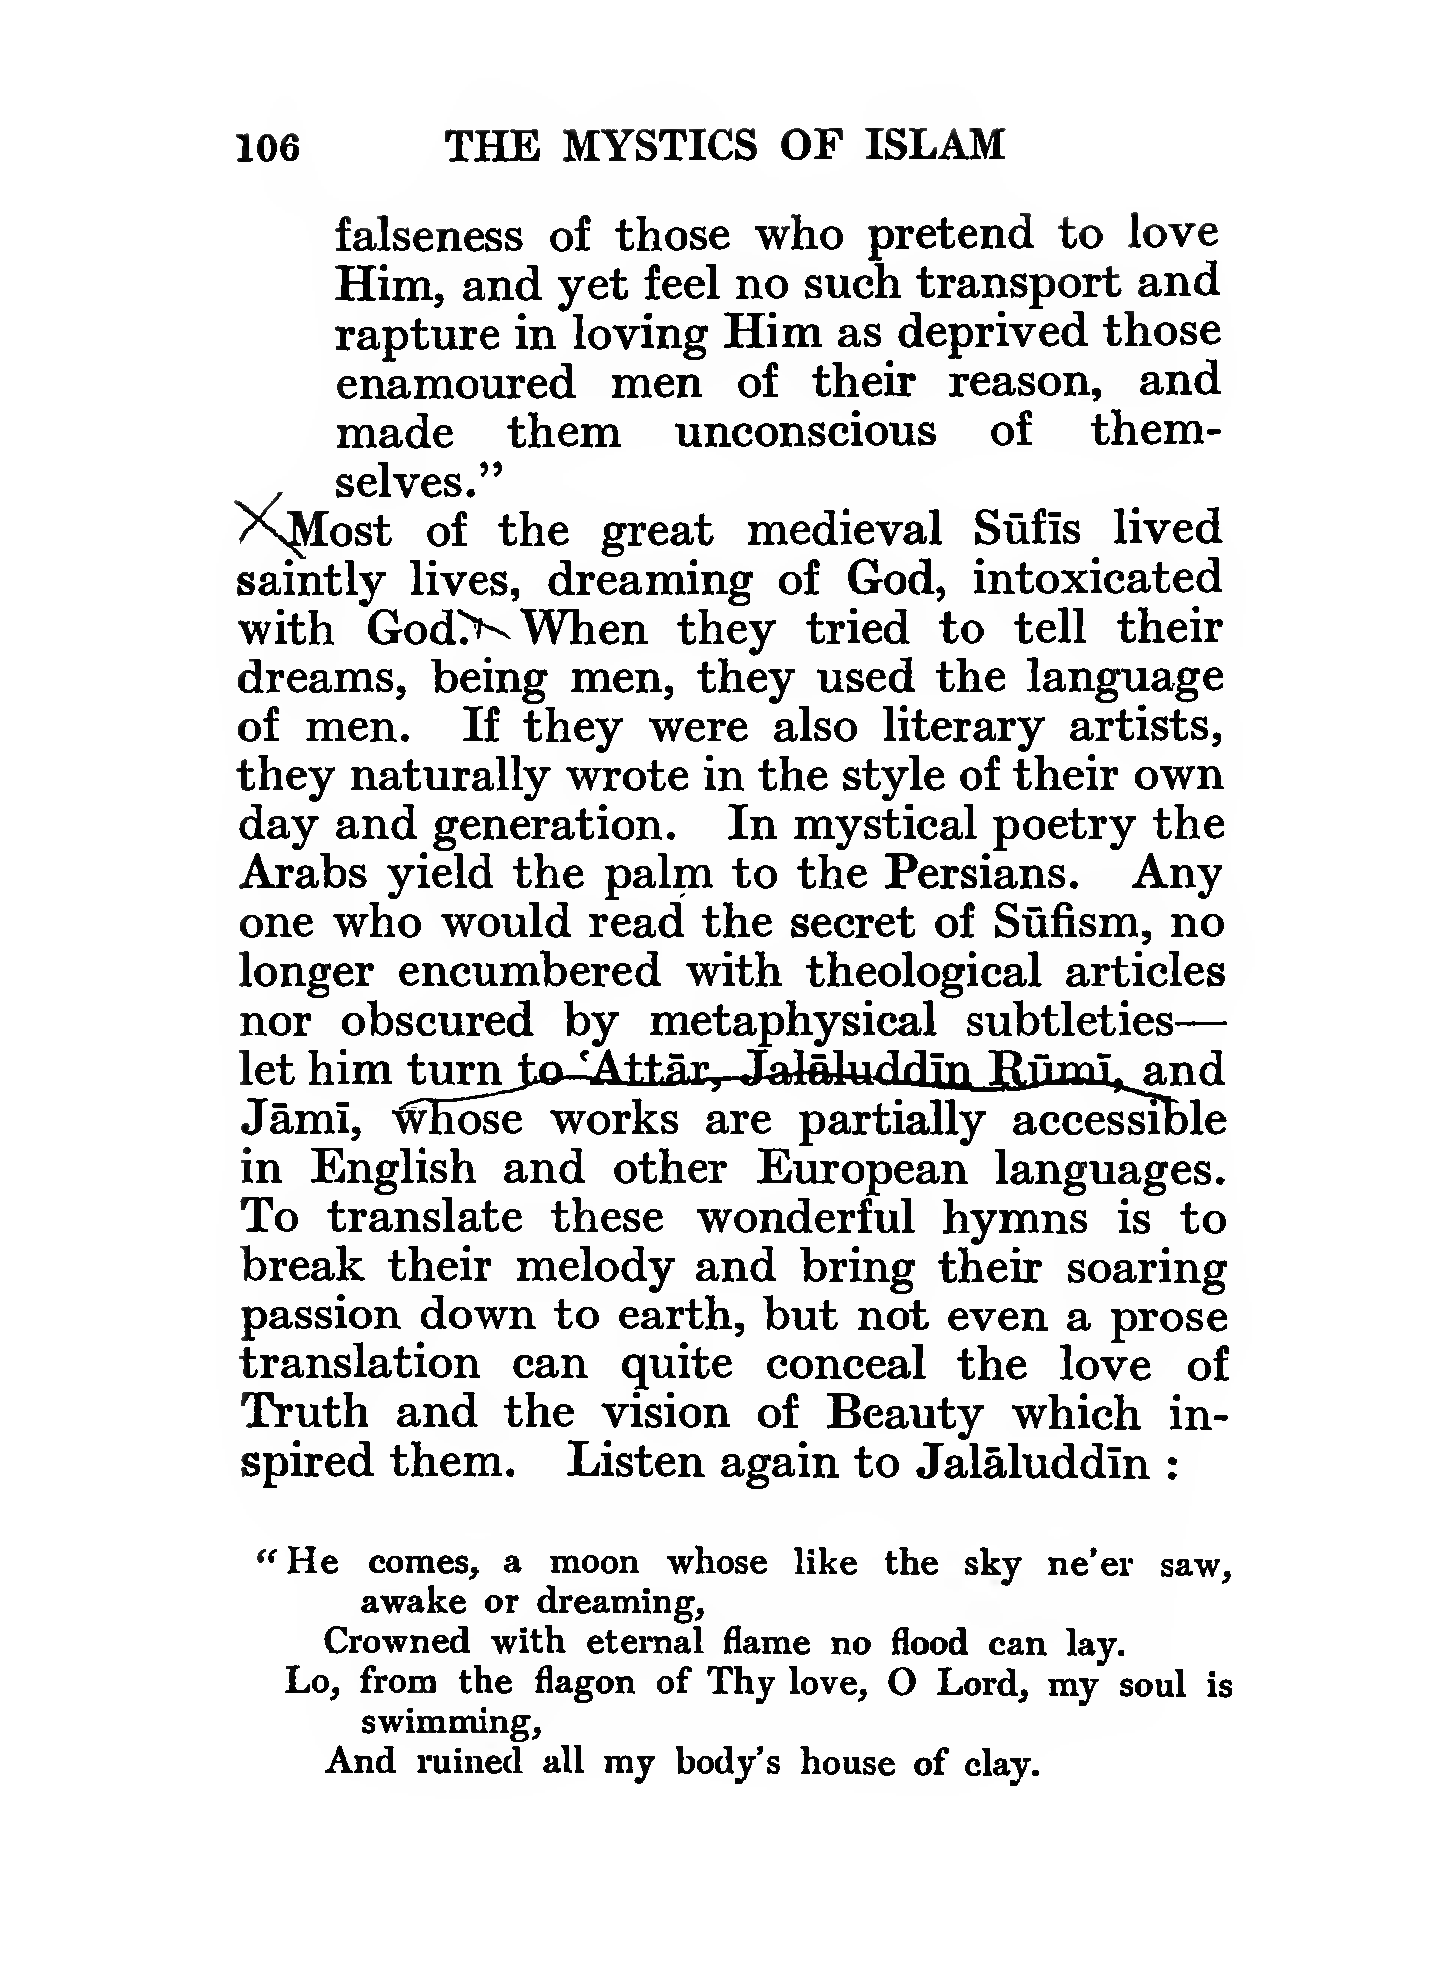 106 THE MYSTICS OF ISLAM
falseness of those who pretend to love
Him, and yet feel no such transport and
rapture in loving Him as deprived those
enamoured men of their reason, and
made them unconscious of them-
selves.”
Most of the great medieval Sūfīs lived
saintly lives, dreaming of God, intoxicated
with God. When they tried to tell their
dreams, being men, they used the language
of men. If they were also literary artists,
they naturally wrote in the style of their own
day and generation. In mystical poetry the
Arabs yield the palm to the Persians. Any
one who would read the secret of Sūfism, no
longer encumbered with theological articles
nor obscured by metaphysical subtleties—
let him turn to ‘Attār, Jalāluddīn Rūmī, and
Jāmī, whose works are partially accessible
in English and other European languages.
To translate these wonderful hymns is to
break their melody and bring their soaring
passion down to earth, but not even a prose
translation can quite conceal the love of
Truth and the vision of Beauty which in-
spired them. Listen again to Jalāluddīn :
“He comes, a moon whose like the sky ne’er saw,
awake or dreaming,
Crowned with eternal flame no flood can lay.
Lo, from the flagon of Thy love, O Lord, my soul is
swimming,
And ruined all my body’s house of clay.